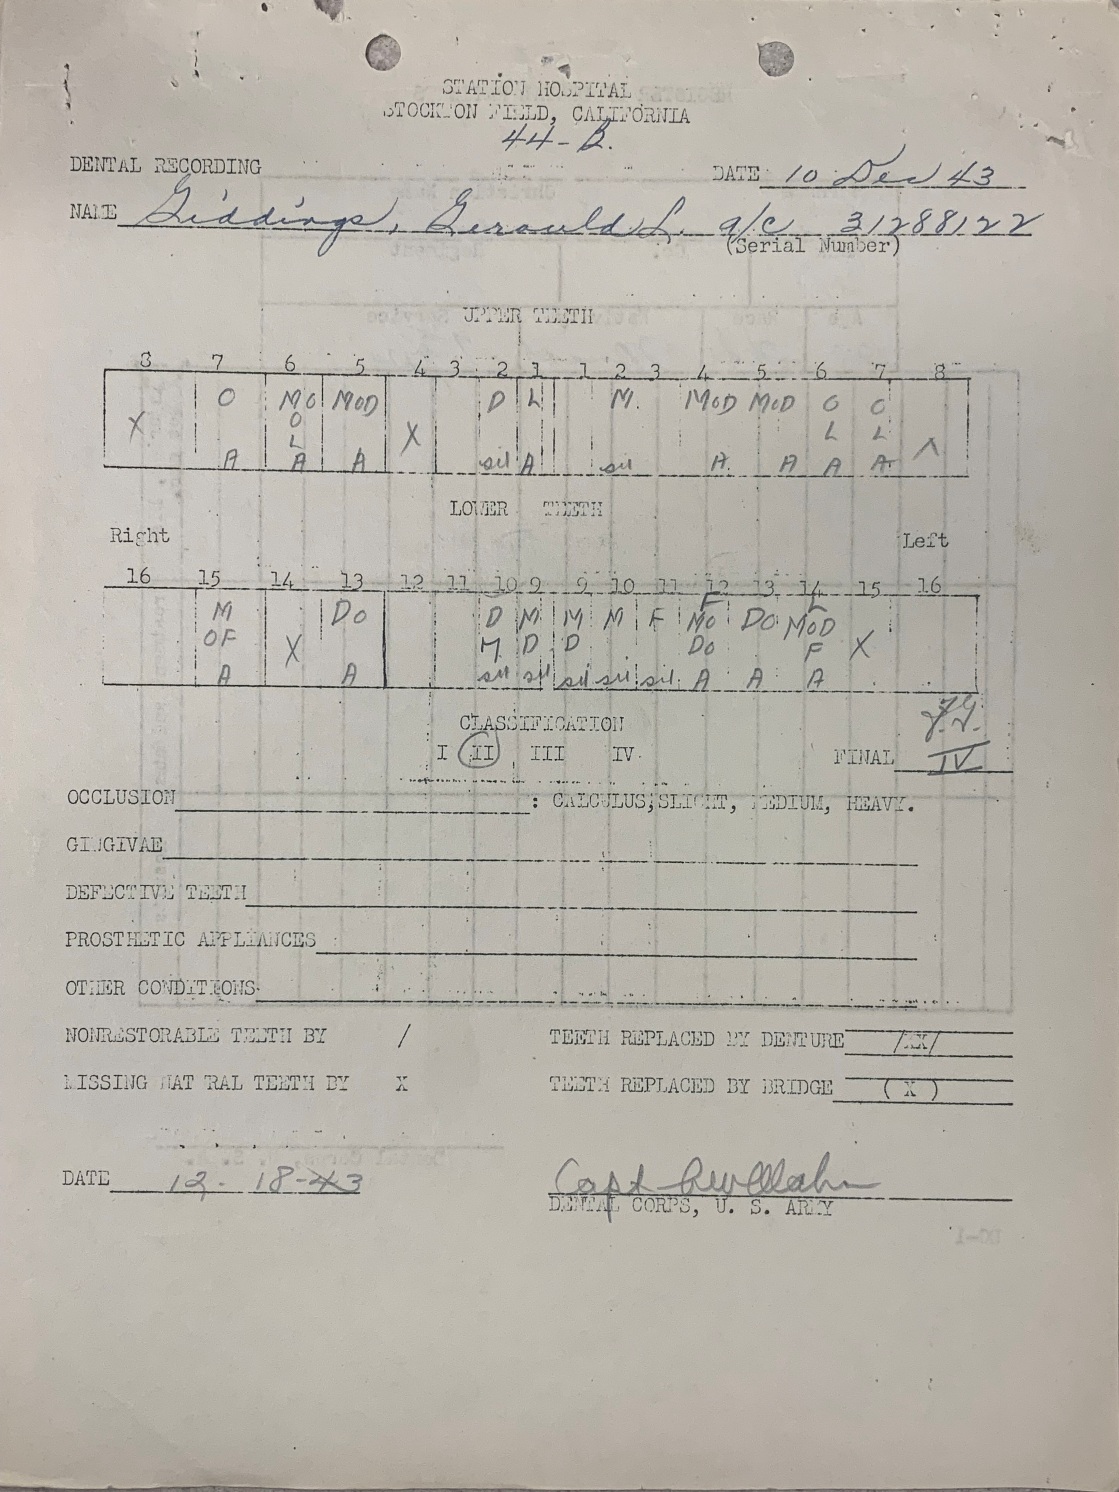 STATION HOSPITAL
STOCKTON FIELD, CALIFORNIA
44-B.
DENTAL RECORDING DATE 10 Dec 43
NAME Giddings, Gerould L. a/c 31288122
(Serial Number)
UPPER TEETH
8 7 6 5 4 3 2 1 1 2 3 4 5 6 7 8
X O MO MOD X D L M. MOD MOD O O
O L L L
A A A sil A sil A. A A A.
LOWER TEETH
Right Left
16 15 14 13 12 11 10 9 9 10 11 12 13 14 15 16
M X DO D M M M F F MO DO MOD X
OF M D D DO F
A A sil sil sil sil sil A A A
CLASSIFICATION
I II III IV FINAL IV
OCCLUSION : CALCULUS; SLIGHT, MEDIUM, HEAVY.
GINGIVAE
DEFECTIVE TEETH
PROSTHETIC APPLIANCES
OTHER CONDITIONS
NONRESTORABLE TEETH BY / TEETH REPLACED BY DENTURE /XX/
MISSING NATURAL TEETH BY X TEETH REPLACED BY BRIDGE ( X )
DATE 12-18-43 Capt
DENTAL CORPS, U. S. ARMY